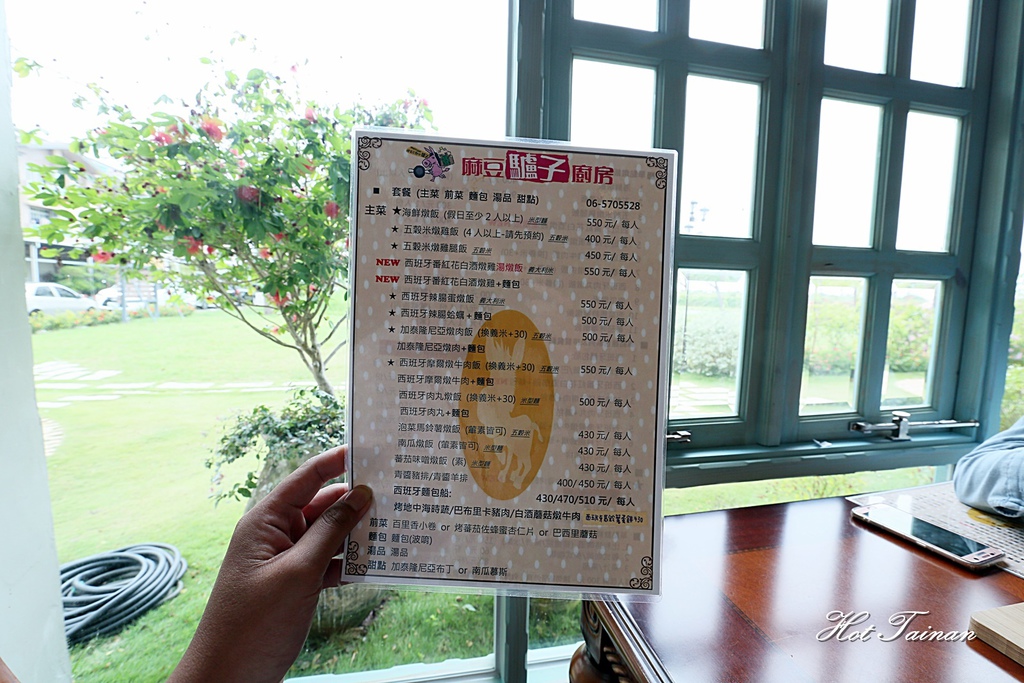 麻豆驢子廚房
■ 套餐 (主菜 前菜 麵包 湯品 甜點) 06-5705528
主菜 ★海鮮燉飯 (假日至少 2 人以上) 米型麵 550 元/ 每人
★ 五穀米燉雞飯 (4 人以上-請先預約) 五穀米 400 元/ 每人
★ 五穀米燉雞腿飯 五穀米 450 元/ 每人
NEW 西班牙番紅花白酒燉雞湯燉飯 義大利米 550 元/ 每人
NEW 西班牙番紅花白酒燉雞+麵包
★ 西班牙辣腸蛋燉飯 義大利米 550 元/ 每人
★ 西班牙辣腸蛤蠣+麵包 500 元/ 每人
★ 加泰隆尼亞燉肉飯 (換義米+30) 五穀米 500 元/ 每人
加泰隆尼亞燉肉+麵包
★ 西班牙摩爾燉牛肉飯 (換義米+30) 五穀米 550 元/ 每人
西班牙摩爾燉牛肉+麵包
西班牙肉丸燉飯 (換義米+30) 米型麵 500 元/ 每人
西班牙肉丸+麵包
泡菜馬鈴薯燉飯 (葷素皆可) 五穀米 430 元/ 每人
南瓜燉飯 (葷素皆可) 米型麵 430 元/ 每人
蕃茄味噌燉飯 (素) 米型麵 430 元/ 每人
青醬豬排/青醬羊排 400/ 450 元/ 每人
西班牙麵包船: 430/470/510 元/ 每人
烤地中海時蔬/巴布里卡豬肉/白酒蘑菇燉牛肉
前菜 百里香小卷 or 烤蕃茄佐蜂蜜杏仁片 or 巴西里蘑菇
麵包 麵包(波啃)
湯品 湯品
甜點 加泰隆尼亞布丁 or 南瓜慕斯
Hot Tainan